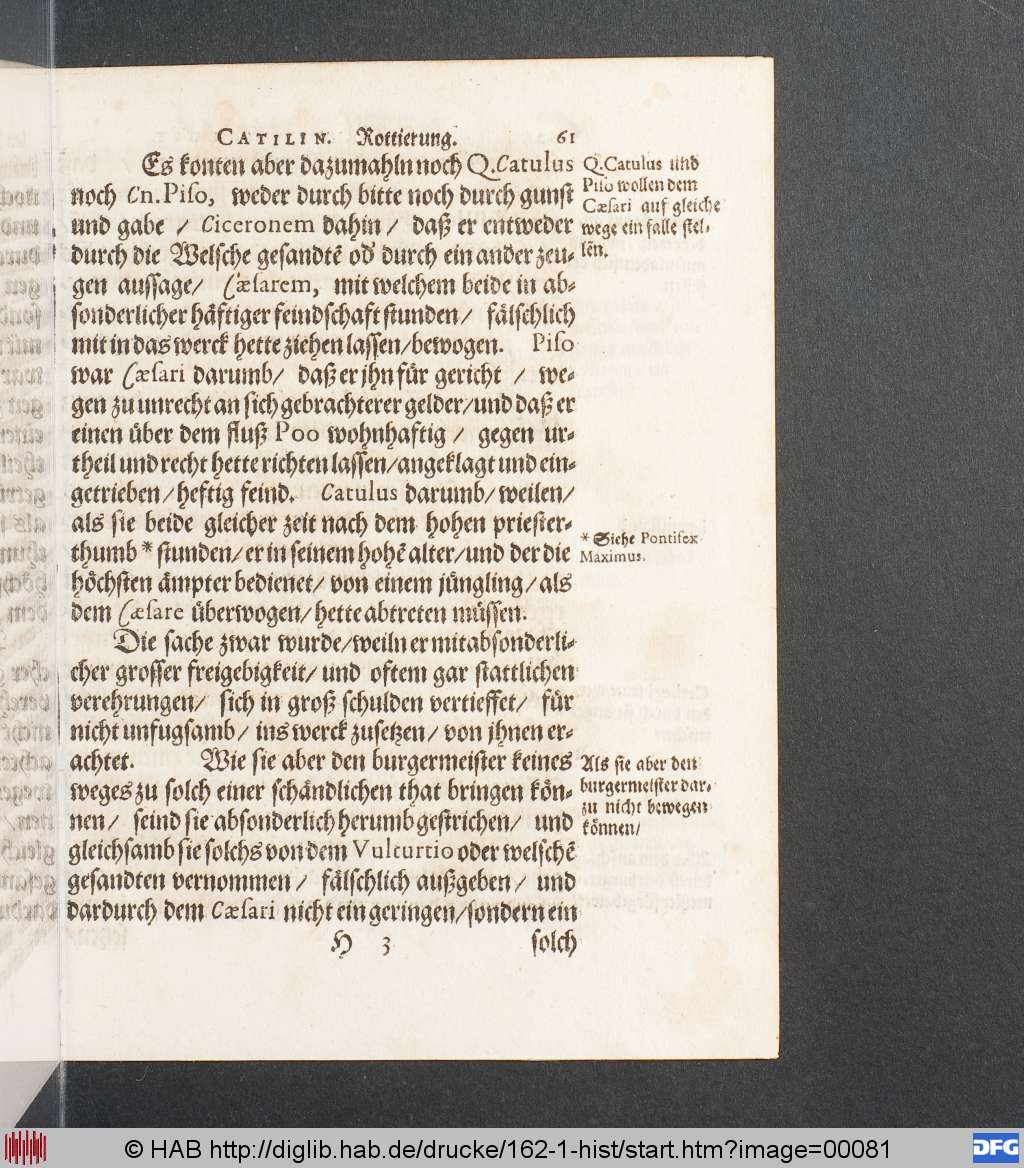 CATILIN. Rottierung. 61
Es konten aber dazumahln noch Q. Catulus
noch Cn. Piso, weder durch bitte noch durch gunst
und gabe / Ciceronem dahin / daß er entweder
durch die Welsche gesandtē od' durch ein ander zeu-
gen aussage / Cæsarem, mit welchem beide in ab-
sonderlicher häftiger feindschaft stunden / fälschlich
mit in das werck hette ziehen lassen / bewogen. Piso
war Cæsari darumb / daß er jhn für gericht / we-
gen zu unrecht an sich gebrachterer gelder / und daß er
einen über dem fluß Poo wohnhaftig / gegen ur-
theil und recht hette richten lassen / angeklagt und ein-
getrieben / heftig feind. Catulus darumb / weilen /
als sie beide gleicher zeit nach dem hohen priester-
thumb * stunden / er in seinem hohē alter / und der die
höchsten ämpter bedienet / von einem jüngling / als
dem Cæsare überwogen / hette abtreten müssen.
Die sache zwar wurde / weiln er mit absonderli-
cher grosser freigebigkeit / und oftem gar stattlichen
verehrungen / sich in groß schulden vertieffet / für
nicht unfugsamb / ins werck zusetzen / von jhnen er-
achtet. Wie sie aber den burgermeister keines
weges zu solch einer schändlichen that bringen kön-
nen / seind sie absonderlich herumb gestrichen / und
gleichsamb sie solchs von dem Vulturtio oder welschē
gesandten vernommen / fälschlich außgeben / und
dardurch dem Cæsari nicht ein geringen / sondern ein
H 3 solch
Q. Catulus und
Piso wollen dem
Cæsari auf gleiche
wege ein falle stel-
lēn.
* Siehe Pontifex
Maximus.
Als sie aber den
burgermeister dar-
zu nicht bewegen
können /
© HAB http://diglib.hab.de/drucke/162-1-hist/start.htm?image=00081
DFG